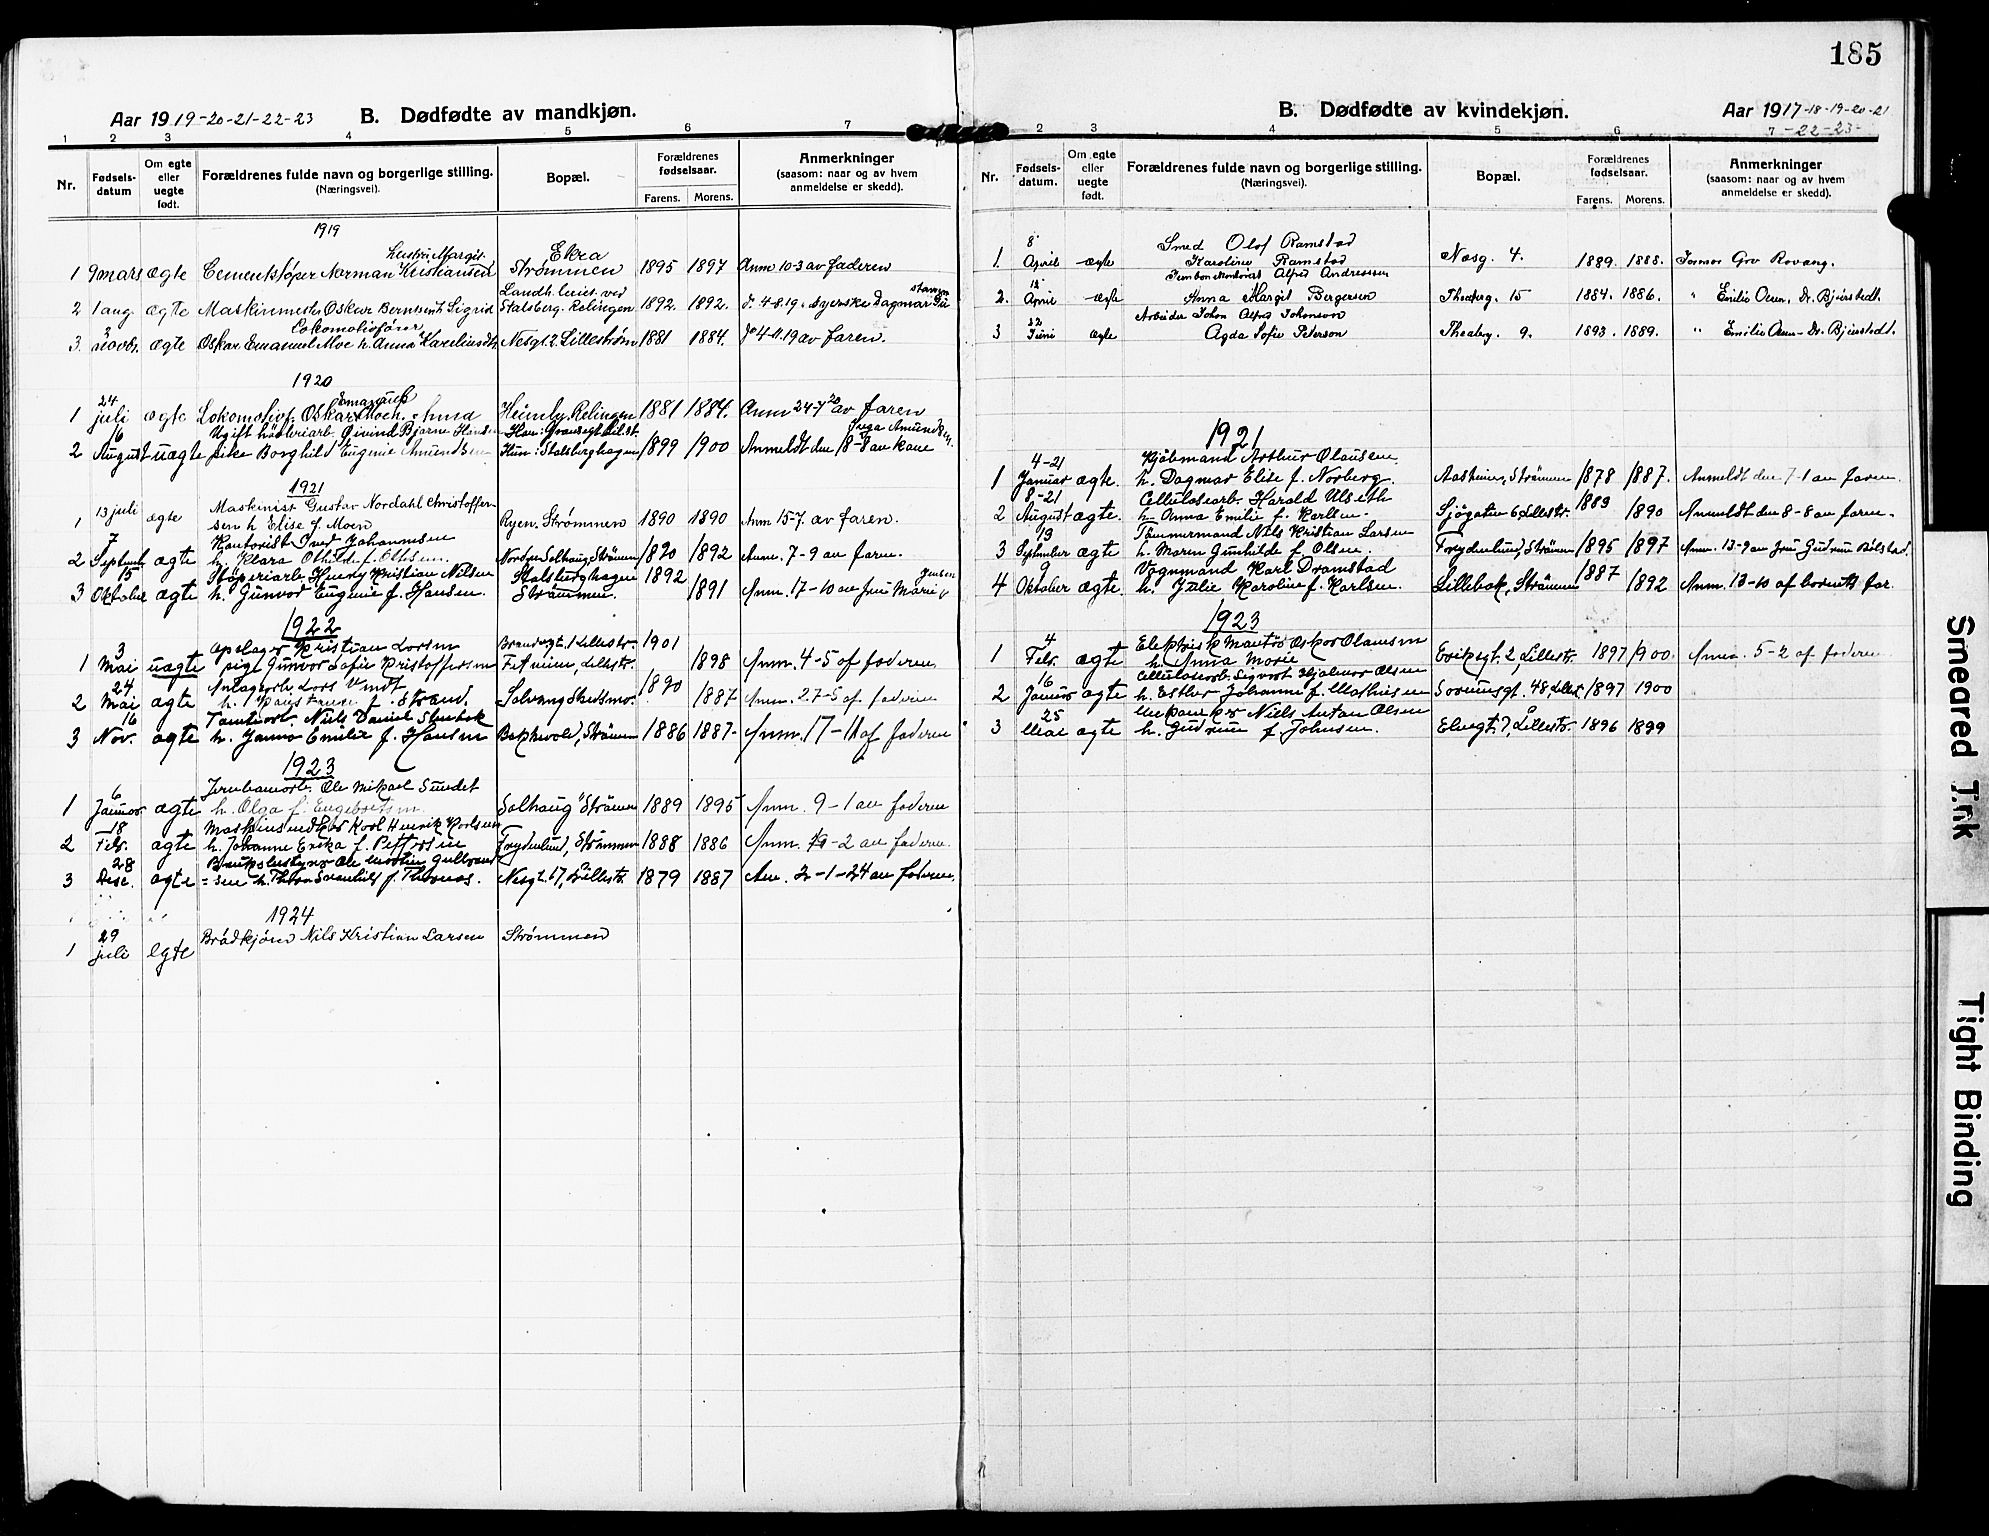 185
Aar 1919-20-21-22-23
B. Dødfødte av mandkjøn.
1 2 3 4 5 6 7
Nr.
Fødsels-
datum
Om egte
eller
uegte
født.
Forældrenes fulde navn og borgerlige stilling.
(Næringsvei).
Bopæl.
Forældrenes
fødselsaar.
Farens. Morens.
Anmerkninger
(saasom: naar og av hvem
anmeldelse er skedd).
1919
Margit Ekra
1 9 mars ægte Cementstøper Norman Kristiansen Strømmen 1895 1897 Anm 10-3 av faderen
Landh. ved
2 1 aug. ægte Maskinmester Oskar Sigrid Stalsberg. Relingen 1892. 1892. 4-8.19. Dagmar
Lokomotivfører
3. 3 novbr. ægte Oskar Emanuel Moe h. Anna Nesgt. 2 Lillestrøm 1881 1884. 4-11.19 av faren.
1920
24 Emanuel
1 juli ægte Lokomotivf. Oskar Moe h. Heimly. Relingen 1881 1884. Anm 24-7 20 av faren
16 Ugift Eivind Bjarne Hansen Han: Amundsen
2 August uægte pike Borghild Eugenie Amundsen Hun: Stalsberghagen 1899 1900 Anmeldt den 18-8 av
1921
13 juli Maskinist Gustav Nordahl Christoffer-
1 ægte sen h Elise f. Moen Ryen. Strømmen 1890 1890 Anm 15-7. av faren.
7 Kontorist Johannesen
2 Septemb. ægte h. Klara Othilde f. Solhaug Strømmen 1890 1892 Anm. 7-9 av faren.
15 Støperiarb. Kristian Nilsen Stalsberghagen 1892 Jensen
3 Oktober ægte h. Gunvor Eugenie f. Hansen. Strømmen 1891 Anm. 17-10 av fru Marie
1922
3 Opslager Kristian Larsen 1 Lillestr. 1901
1 Mai uægte pige Gunvor Sofie Kristoffersen Lillestr. 1898 Anm. 4-5 af faderen
24 1890
2 Mai ægte h. f. Strand. Solvang Skedsmo. 1887 Anm. 27-5 af faderen
16 Tomtearb. Niels Daniel
3 Nov. ægte h. Emilie f. Hansen Strømmen 1886 1887- Anm. 17-11 af faderen
1923
6 Jernbanearb. Ole Mikael Sundet
1 Januar ægte h. Olga f. Engebretsen Solhaug Strømmen 1889 1895 Anm. 9-1 av faderen
18 Karl Henrik Karlsen
2 Febr. ægte h. Johanne Erika f. Pettersen Frydenlund, Strømmen 1888 1886 Anm. -2 av faderen.
28 Ole Martin
3 Dese. ægte = sen h. f. Thomas. Nesgt. 17, Lillestr. 1879 1887 Anm. 2-1-24 av faderen.
1924
29
1 juli egte Nils Kristian Larsen Strømmen
B. Dødfødte av kvindekjøn.
Aar 1917-18-19-20-21
-22-23-
2 3 4 5 6
Nr.
Fødsels-
datum.
Om egte
eller
uegte
født.
Forældrenes fulde navn og borgerlige stilling.
(Næringsvei).
Bopæl.
Forældrenes
fødselsaar.
Farens. Morens.
Anmerkninger
(saasom: naar og av hvem
anmeldelse er skedd).
8 Smed Olof Ramstad
1. April ægte Karoline Ramstad Næsg. 4. 1889. 1888. Jormor Rovang.
Alfred Andressen
2. April ægte Anna Margit Bergersen Theaterg. 15 1884. 1886. " Emilie Dr. Bjerstedt.
22 Arbeider Johan Alfred Johanson
3 Juni ægte Agda Sofie Peterson 9. 1893. 1889. " Emilie Dr. Bjerstedt.
1921
4-21 Kjøbmand Arthur Olausen.
1 Januar ægte. h. Dagmar Elise f. Norberg. Aasheim, Strømmen 1878 1887. Anmeldt den 7-1 av faren.
8-21 Cellulosearb. Harald Ulseth
2 August ægte. h. Anna Emilie f. Karlsen. Sjøgaten 6, Lillestr. 1889 1890 Anmeldt den 8-8 av faren.
13 Tømmermand Nils Kristian Larsen
3 September ægte h. Maren Gunhilde f. Olsen. Frydenlund, Strømmen 1895 1897 Anm. 13-9 av fru Gudrun Bølstad.
9 Vognmand Karl Dramstad 1887
4 Oktober ægte. h. Julie Karoline f. Karlsen. Lillebak, Strømmen 1892 Anm. 13-10 af barnets far.
1923
4 Elektrisk Montør Oskar Olausen
1 Febr. ægte h. Anna Marie Eriksgt. 2 Lillestr. 1897 1900. Anm. 5-2 af faderen
16 Cellulosearb. Sigvart Hjalmar Olsen
2 Januar ægte h. Esther Johanne f. Mathisen 48, Lillestr. 1897 1900
25 Mekaniker Niels Anton Olsen
3 Mai ægte h. Gudrun f. Johnsen. Elvegt. 7, Lillestr. 1896 1899
Smeared Ink
Tight Binding